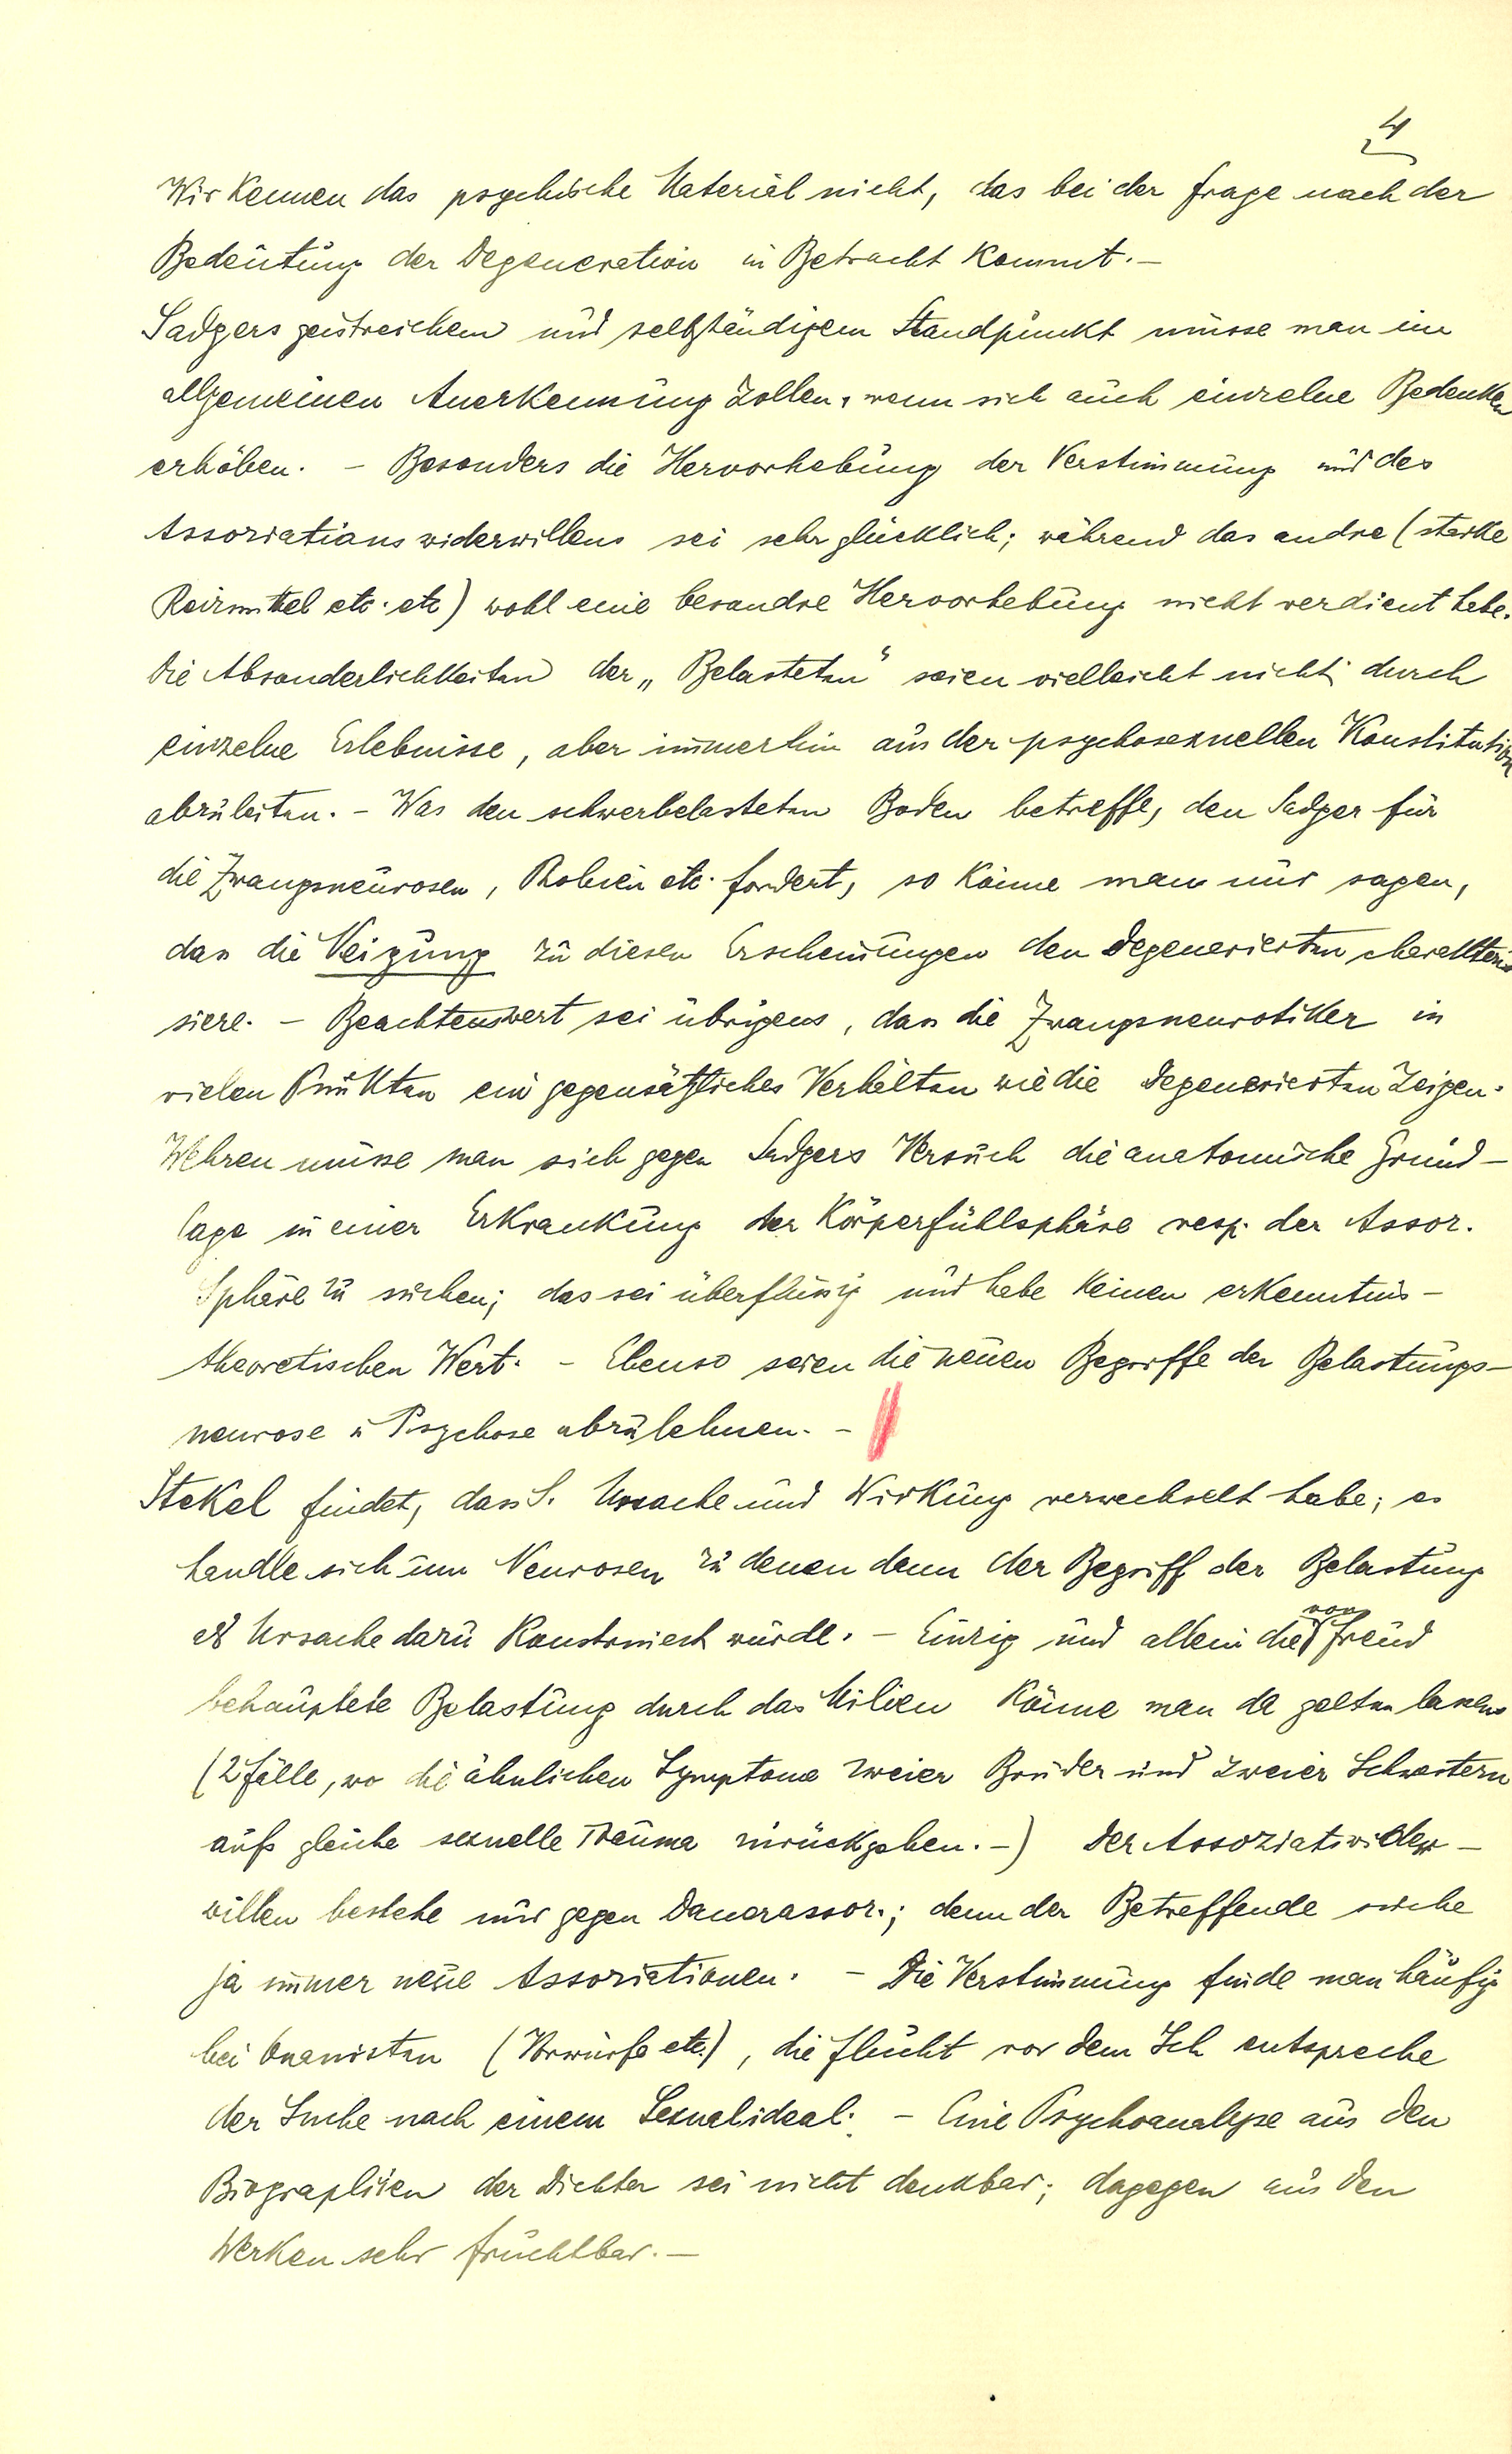 4
Wir kennen das psychische Material nicht, das bei der Frage nach der
Bedeutung der Degeneration in Betracht kommt. –
Sadgers geistreichem und selbständigem Standpunkt müsse man im
allgemeinen Anerkennung zollen, wenn sich auch einzelne Bedenken
erhöben. – Besonders die Hervorhebung der Verstimmung und des
Assoziationswiderwillens sei sehr glücklich; während das andre (starke
Reizmittel etc. etc) wohl eine besondre Hervorhebung nicht verdient habe.
Die Absonderlichkeiten der „Belasteten“ seien vielleicht nicht durch
einzelne Erlebnisse, aber immerhin aus der psychosexuellen Konstitution
abzuleiten. – Was den schwerbelasteten Boden betreffe, den Sadger für
die Zwangsneurosen, Phobien etc. fordert, so könne man nur sagen,
dass die Neigung zu diesen Erscheinungen den Degenerierten charakteri
siere. – Beachtenswert sei übrigens, dass die Zwangsneurotiker in
vielen Punkten ein gegensätzliches Verhalten wie die Degenerierten zeigen.
Wehren müsse man sich gegen Sadgers Versuch die anatomische Grund–
lage in einer Erkrankung der Körperfühlsphäre resp. der Assoz.
Sphäre zu suchen; das sei überflüssig und habe keinen erkenntnis–
theoretischen Wert. – Ebenso seien die neuen Begriffe der Belastungs–
neurose u Psychose abzulehnen. –
Stekel findet, dass S. Ursache und Wirkung verwechselt habe; es
handle sich um Neurosen zu denen dann der Begriff der Belastung
als Ursache dazu konstruiert würde. – Einzig und allein die von Freud
behauptete Belastung durch das Milieu könne man da gelten lassen
(2 Fälle, wo die ähnlichen Symptome zweier Brüder und zweier Schwestern
aufs gleiche sexuelle Trauma zurückgehen. –) Der Assoziatiwider–
willen bestehe nur gegen Dauerassoz.; denn der Betreffende suche
ja immer neue Assoziationen. – Die Verstimmung finde man häufig
bei Onanisten (Vorwürfe etc.), die Flucht vor dem Ich entspreche
der Suche nach einem Sexualideal. – Eine Psychoanalyse aus den
Biographien der Dichter sei nicht denkbar; dagegen aus den
Werken sehr fruchtbar. –